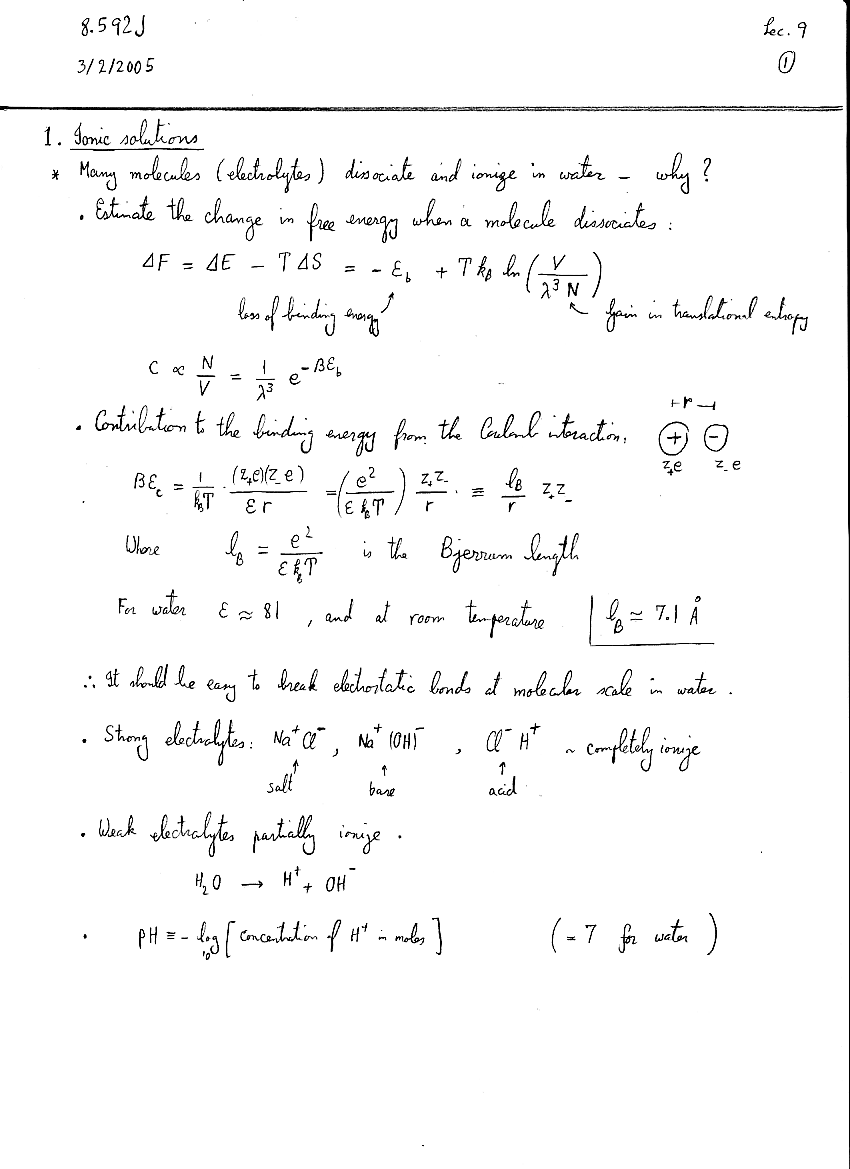 8.592J Lec. 9
3/2/2005 ①
1. Ionic solutions
* Many molecules (electrolytes) dissociate and ionize in water – why?
• Estimate the change in free energy when a molecule dissociates:
ΔF = ΔE – TΔS = – ε_b + T k_B ln(V / λ³N)
loss of binding energy ↗ ↖ Gain in translational entropy
C ∝ N/V = 1/λ³ e^{-βε_b}
⊢r⊣
• Contribution to the binding energy from the Coulomb interaction, ⊕ ⊖
z₊e z₋e
βε_c = 1/(k_BT) · (z₊e)(z₋e)/(εr) = (e²/(εk_BT)) z₊z₋/r · ≡ l_B/r z₊z₋
Where l_B = e²/(εk_BT) is the Bjerrum length
For water ε ≈ 81, and at room temperature l_B ≃ 7.1 Å
∴ It should be easy to break electrostatic bonds at molecular scale in water.
• Strong electrolytes: Na⁺Cl⁻, Na⁺(OH)⁻, Cl⁻H⁺ ~ completely ionize
↑ ↑ ↑
salt base acid
• Weak electrolytes partially ionize.
H₂O → H⁺ + OH⁻
• pH ≡ – log₁₀[concentration of H⁺ in moles] (= 7 for water)